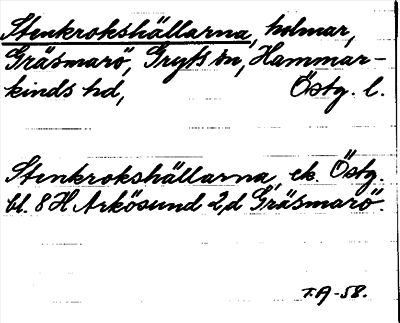 Stenkrokshällarna, holmar,
Gräsmarö, Gryts sn, Hammar-
kinds hd, Östg. l.
Stenkrokshällarna, ek. Östg.
bl. 8H Arkösund 2,d Gräsmarö.
T.A-58.